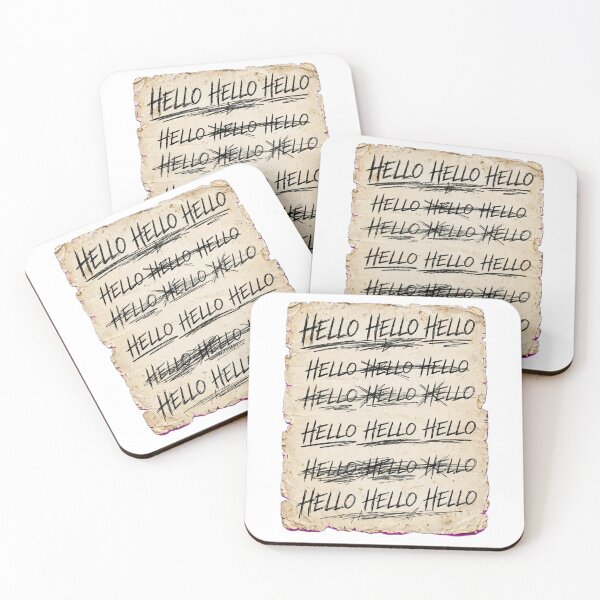 HELLO HELLO HELLO
HELLO HELLO HELLO
HELLO HELLO HELLO
HELLO
HELLO HELLO HELLO
HELLO HELLO HELLO
HELLO HELLO HELLO
HELLO HELLO HELLO
HELLO HELLO HELLO
HELLO HELLO HELLO
HELLO HELLO HELLO
HELLO HELLO HELLO
HELLO HELLO HELLO
HELLO HELLO
HELLO HELLO
HELLO HELLO HELLO
HELLO HELLO HELLO
HELLO HELLO HELLO
HELLO HELLO HELLO
HELLO HELLO HELLO
HELLO HELLO HELLO